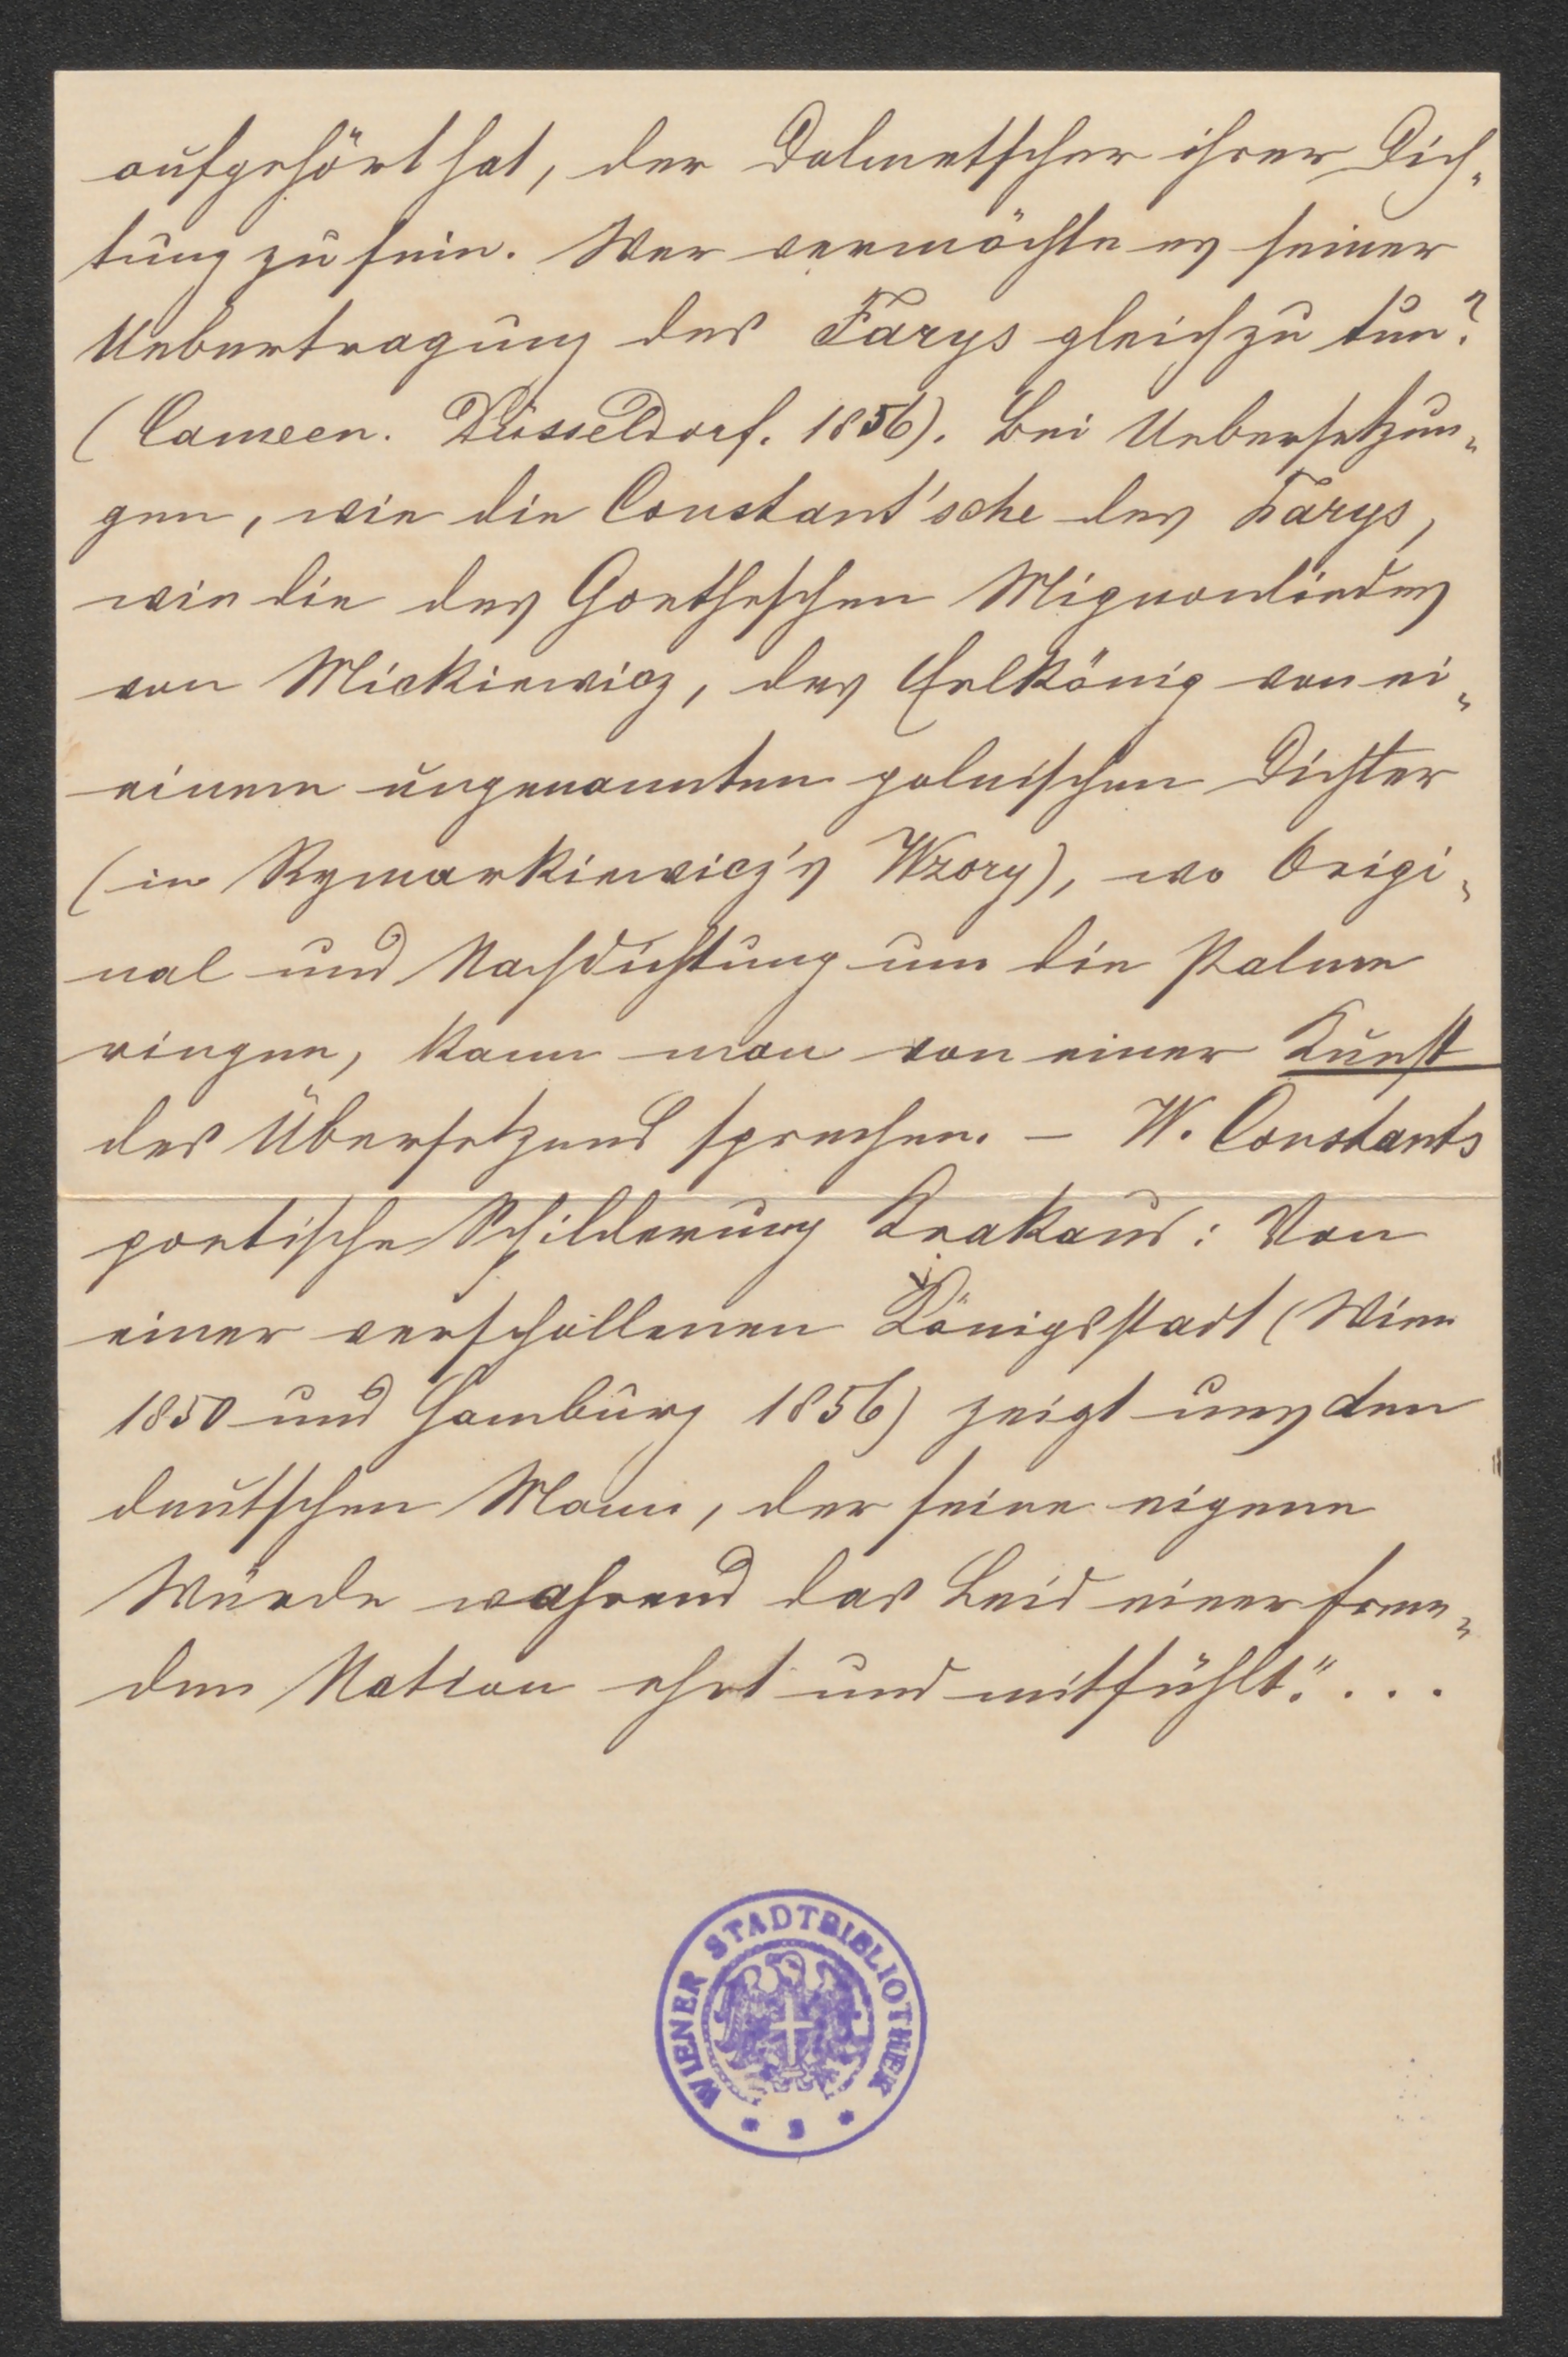 aufgehört hat, der Dolmetscher ihrer Dich-
tung zu sein. Wer vermöchte es seiner
Uebertragung des Farys gleichzu tun?
(Cameen. Düsseldorf. 1856). Bei Uebersetzun-
gen, wie die Constant'sche des Farys,
wie die des Goetheschen Mignonliedes
von Mickiewicz, des Erlkönig von ei-
einem ungenannten polnischen Dichter
(in Rymarkiewicz's Wzory), wo Origi-
nal und Nachdichtung um die Palme
ringen, kann man von einer Kunst
des Übersetzens sprechen. – W. Constants
poetische Schilderung Krakaus: Von
einer verschollenen Königsstadt (Wien
1850 und Hamburg 1856) zeigt uns den
deutschen Mann, der seine eigene
Würde wahrend das Leid einer frem-
den Nation ehrt und mitfühlt." . . .
WIENER STADTBIBLIOTHEK